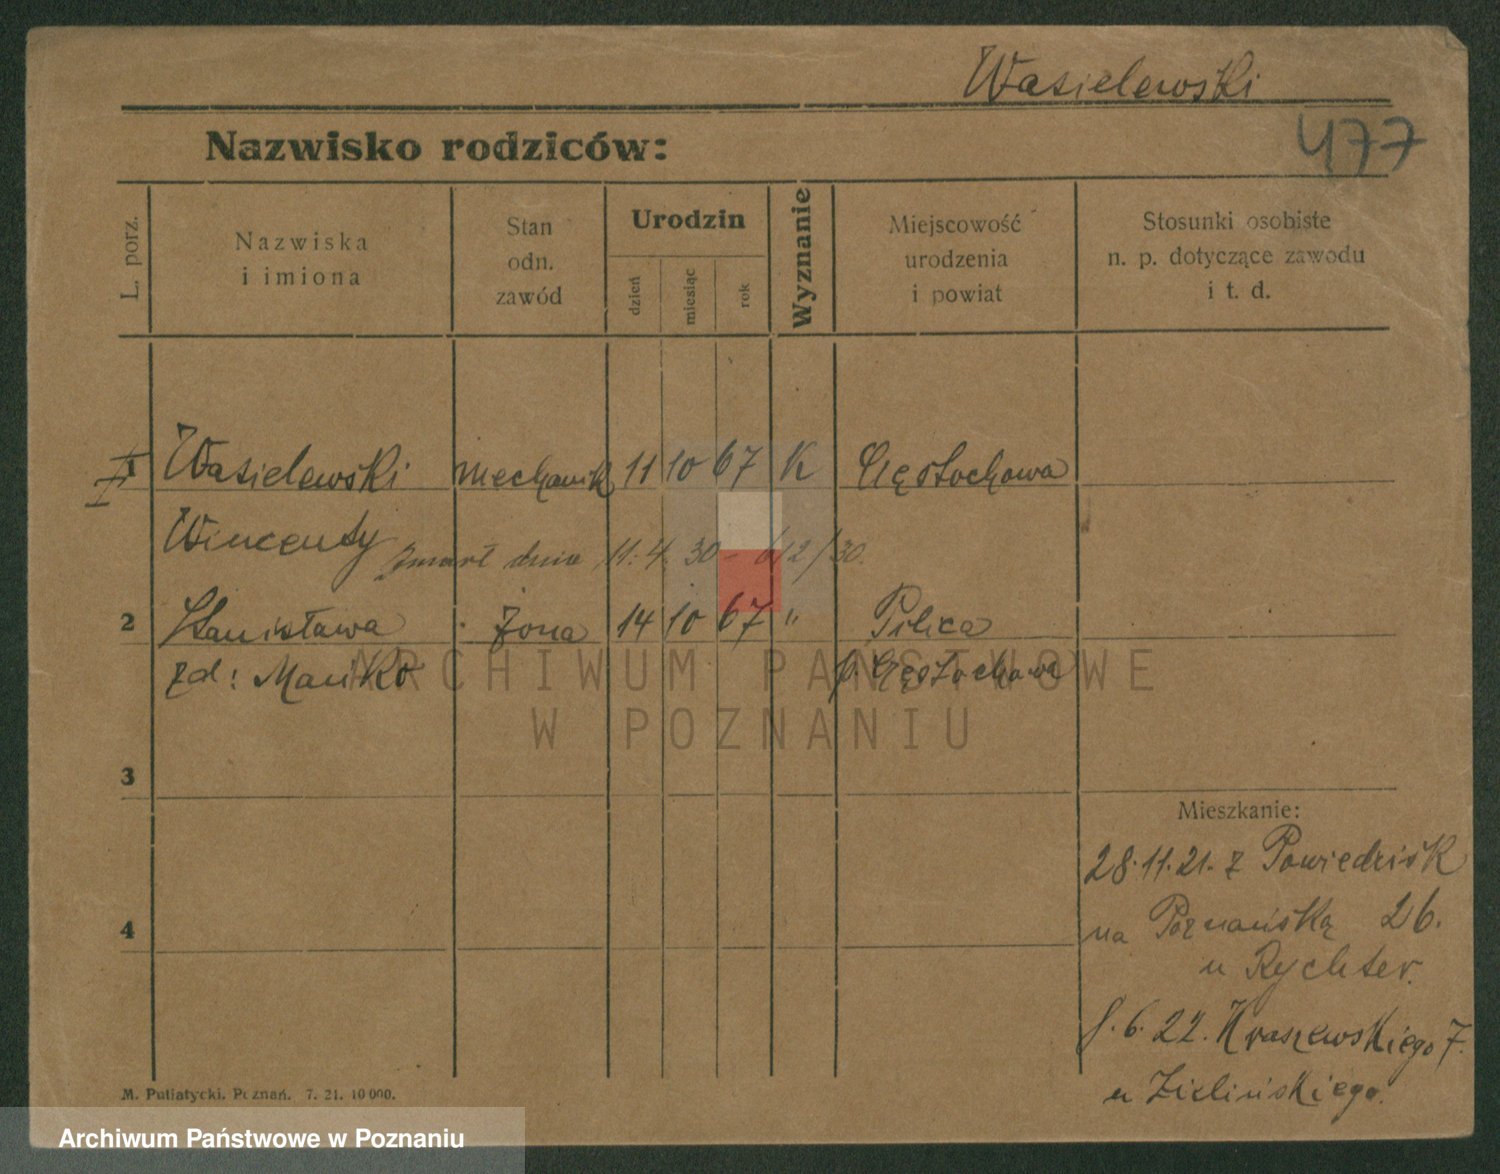 Wasielewski
477
Nazwisko rodziców:
L. porz.
Nazwiska
i imiona
Stan
odn.
zawód
Urodzin
dzień
miesiąc
rok
Wyznanie
Miejscowość
urodzenia
i powiat
Stosunki osobiste
n. p. dotyczące zawodu
i t. d.
1 Wasielewski mechanik 11 10 67 K Częstochowa
Wincenty zmarł dnia 11.4.30 - 612/30.
2 Stanisława żona 14 10 67 " Pilica
zd: Mańko p. Częstochowa
ARCHIWUM PAŃSTWOWE
W POZNANIU
3
Mieszkanie:
28.11.21. z Powiedzisk
4
na Poznańską 26.
u Rychter.
8.6.22. Kraszewskiego 7.
u Zielińskiego.
M. Putiatycki. Poznań. 7. 21. 10 000.
Archiwum Państwowe w Poznaniu